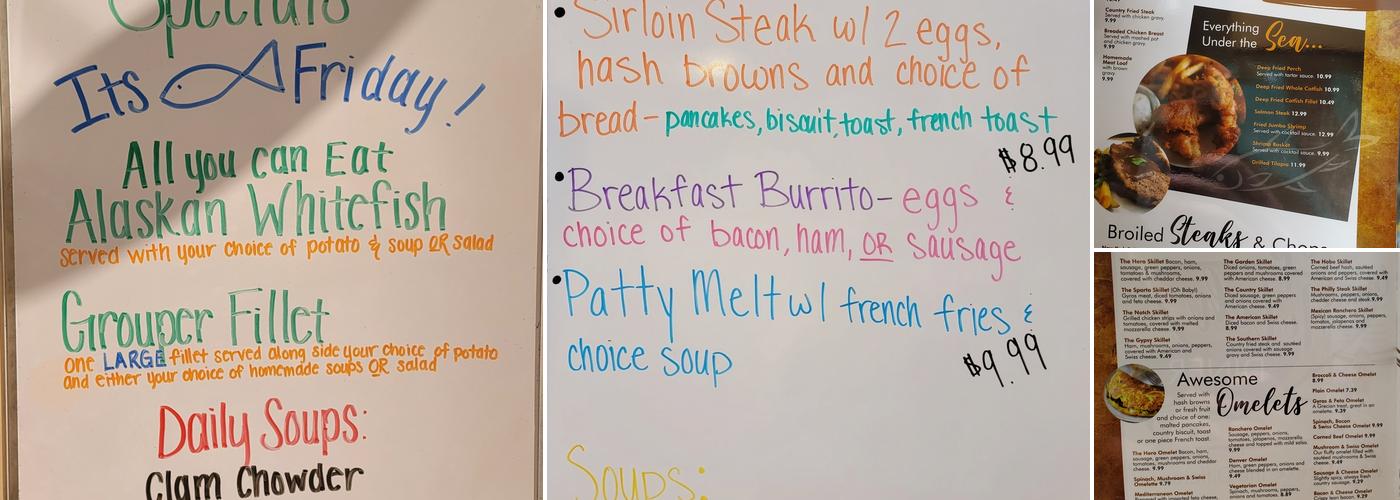 Specials
Its Friday!
All you can Eat
Alaskan Whitefish
served with your choice of potato & soup OR salad
Grouper Fillet
one LARGE fillet served along side your choice of potato
and either your choice of homemade soups OR salad
Daily Soups:
Clam Chowder
• Sirloin Steak w/ 2 eggs,
hash browns and choice of
bread - pancakes, biscuit, toast, french toast
$8.99
• Breakfast Burrito - eggs &
choice of bacon, ham, OR sausage
• Patty Melt w/ french fries &
choice soup
$9.99
Soups:
Country Fried Steak
Served with chicken gravy.
9.99
Breaded Chicken Breast
Served with mashed pot
and chicken gravy.
9.99
Homemade
Meat Loaf
with brown
gravy.
9.99
Everything
Under the Sea...
Deep Fried Perch
Served with tartar sauce. 10.99
Deep Fried Whole Catfish 10.99
Deep Fried Catfish Fillet 10.49
Salmon Steak 12.99
Fried Jumbo Shrimp
Served with cocktail sauce. 12.99
Shrimp Basket
Served with cocktail sauce. 9.99
Grilled Tilapia 11.99
Broiled Steaks & Chops
The Hero Skillet Bacon, ham,
sausage, green peppers, onions,
tomato & mushrooms
covered with cheddar cheese. 9.99
The Sparta Skillet (Oh Baby!)
Gyros meat, diced tomatoes, onions
and feta cheese. 9.99
The Natch Skillet
Grilled chicken strips with onions and
tomatoes, covered with melted
mozzarella cheese. 9.99
The Gypsy Skillet
Ham, mushrooms, onions, peppers,
covered with American and
Swiss cheese. 9.49
The Garden Skillet
Diced onions, tomatoes, green
peppers and mushrooms covered
with American cheese. 8.99
The Country Skillet
Diced sausage, green peppers
and onions covered with
American cheese. 9.49
The American Skillet
Diced bacon and Swiss cheese.
8.99
The Southern Skillet
Country fried steak and sautéed
onions covered with sausage
gravy and Swiss cheese. 9.99
The Hobo Skillet
Corned beef hash, sautéed
onions and peppers, covered with
American and Swiss cheese. 9.49
The Philly Steak Skillet
Mushrooms, peppers, onions,
cheddar cheese and steak. 9.99
Mexican Ranchero Skillet
(Spicy) sausage, onions, peppers,
tomatoes, jalapenos and
mozzarella cheese. 9.99
Awesome
Omelets
Served with
hash browns
or fresh fruit
and choice of one:
malted pancakes,
country biscuit, toast
or one piece French toast.
The Hero Omelet Bacon, ham,
sausage, green peppers, onions,
tomatoes, mushrooms and cheddar
cheese. 9.99
Spinach, Mushroom & Swiss
Omelette 9.79
Mediterranean Omelet
Ranchero Omelet
Sausage, peppers, onions,
tomatoes, jalapenos, mozzarella
cheese and topped with mild salsa.
9.99
Denver Omelet
Ham, green peppers, onions and
cheese blended in an omelette.
9.49
Vegetarian Omelet
Spinach, mushrooms, peppers,
onions, tomatoes. 8.89
Broccoli & Cheese Omelet
8.99
Plain Omelet 7.39
Gyros & Feta Omelet
A Grecian treat, great in an
omelette. 9.39
Spinach, Bacon
& Swiss Cheese Omelet 9.99
Corned Beef Omelet 9.99
Mushroom & Swiss Omelet
Our fluffy omelet filled with
sautéed mushrooms & Swiss
cheese. 9.49
Sausage & Cheese Omelet
Slightly spicy, always fresh
country sausage. 9.29
Bacon & Cheese Omelet
Crisp bacon. 9.29